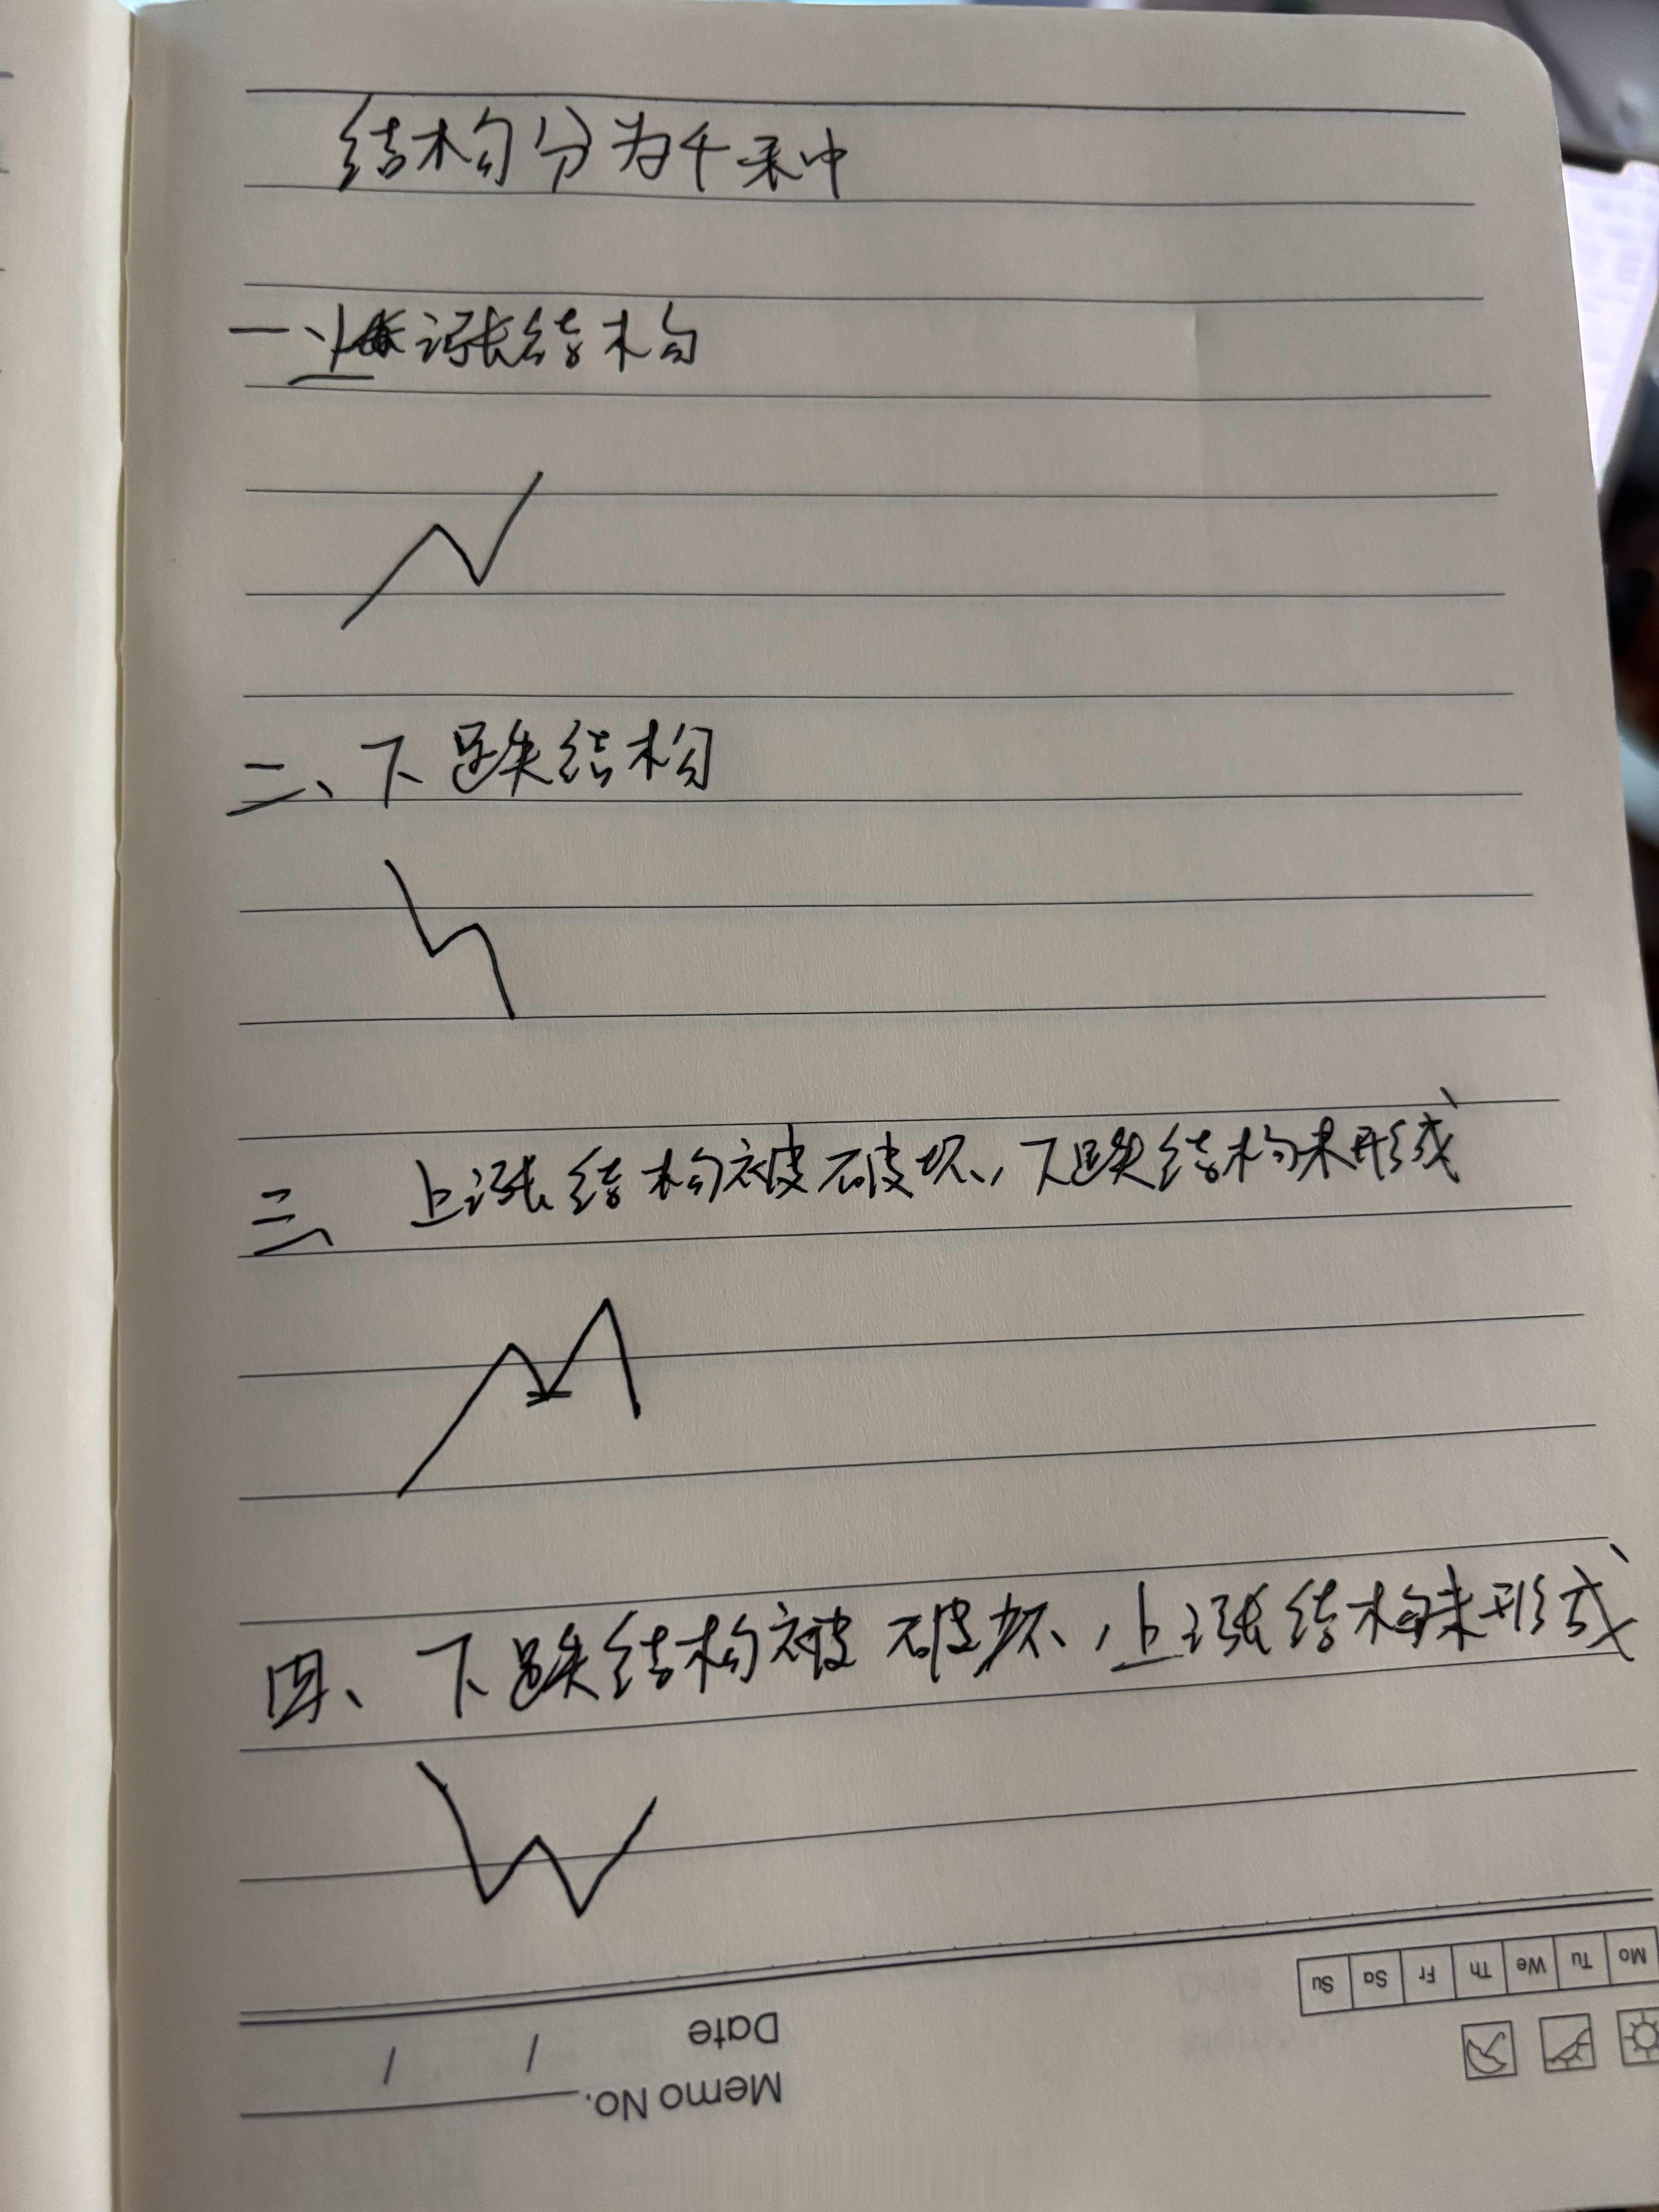 结构分为千来中
一、上涨结构
二、下跌结构
三、上涨结构被破坏,下跌结构未形成
四、下跌结构被破坏,上涨结构未形成
Mo Tu We Th Fr Sa Su
Memo No.
Date / /